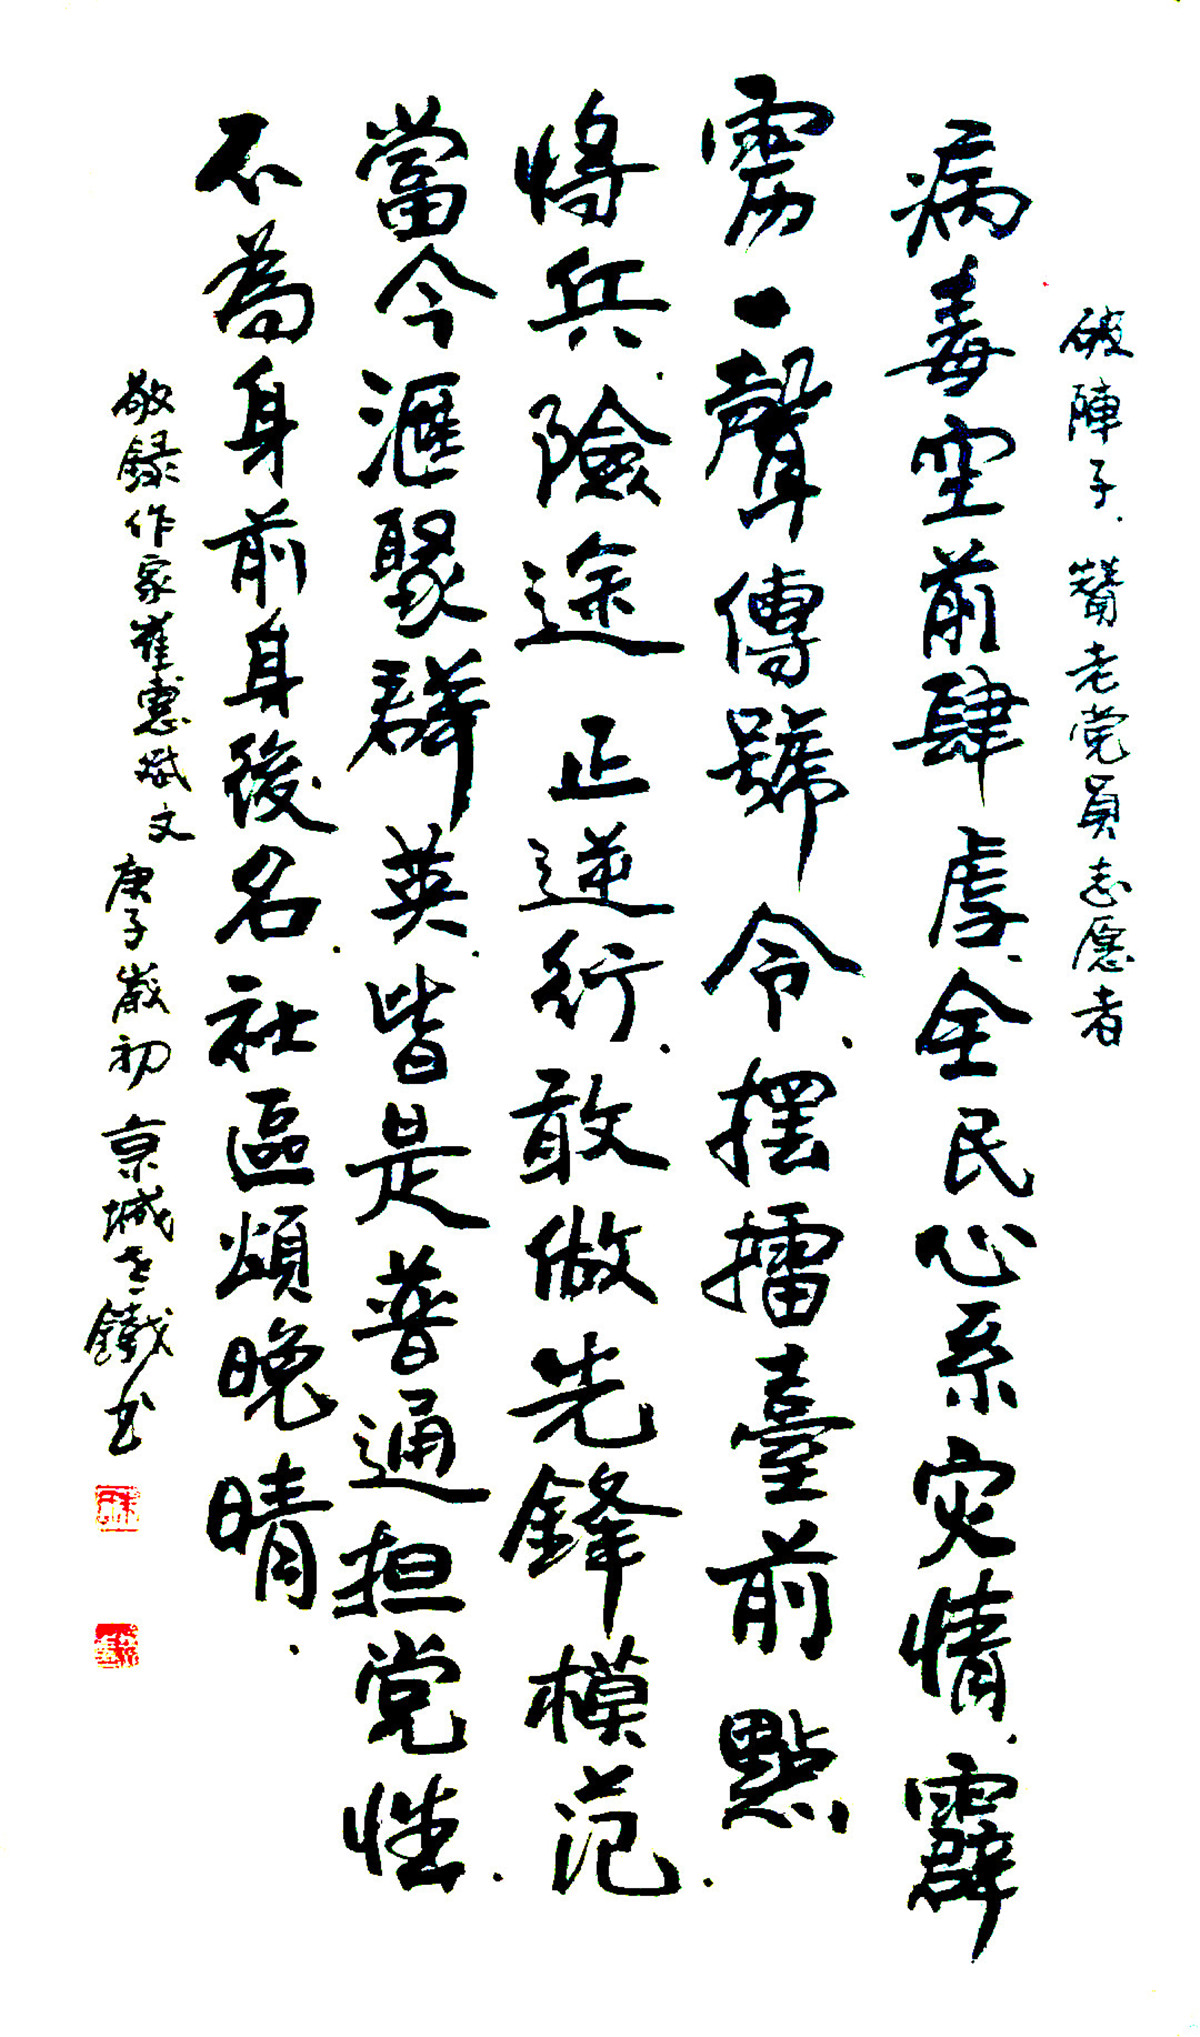 破陣子.贊老党員志愿者
病毒空前肆虐.全民心系灾情.霹
雳一聲傳號令.擺擂臺前點
將兵險途正逆行.敢做先鋒模范.
當今滙聚群英.皆是普通担党性.
不為身前身後名.社區頌晚晴.
敬録作家崔惠斌文庚子歲初京城老鐵书